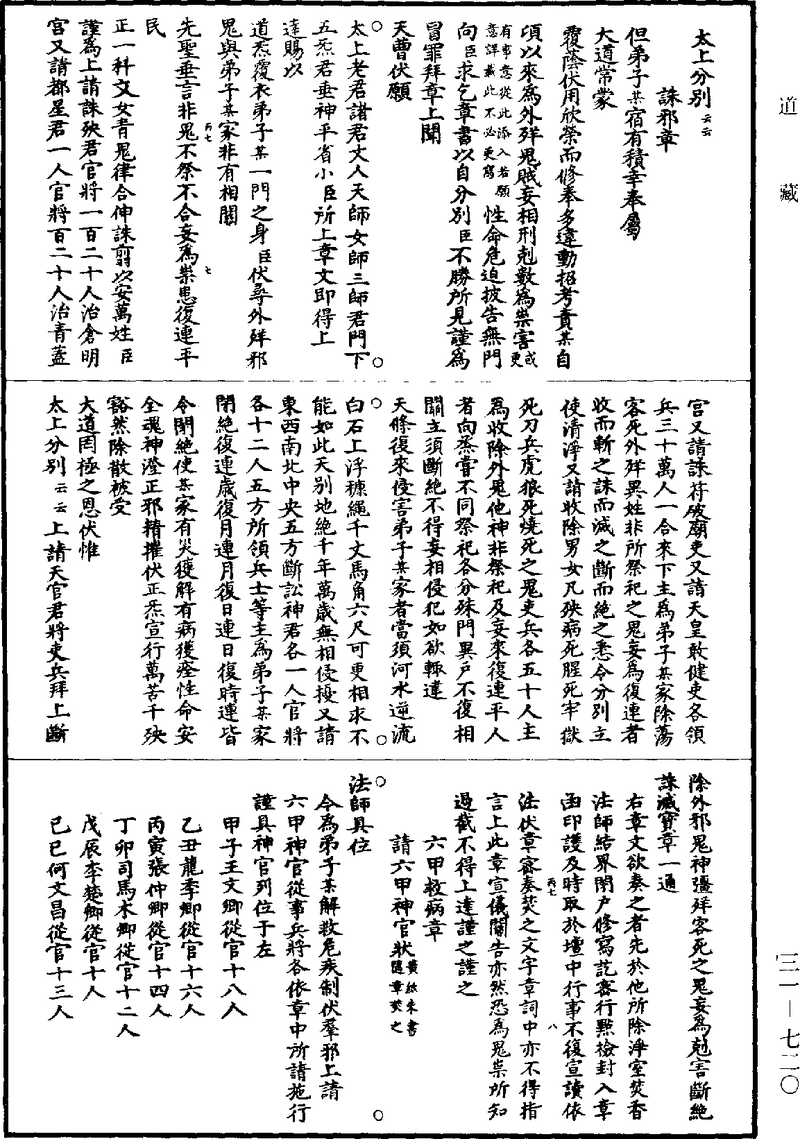 道藏
太上分別云云
誅邪章
但弟子某宿有積幸奉屬
大道常蒙
覆蔭伏用欣榮而修奉多違動招考責某自
頃以來為外殍鬼賊妄相刑剋數為祟害或更
有事意從此添入若願意詳載此不必更寫性命危迫披告無門
向臣求乞章書以自分別臣不勝所見謹為
冒罪拜章上聞
天曹伏願
太上老君諸君丈人天師女師三師君門下
五炁君垂神平省小臣所上章文即得上
達賜以
道炁覆衣弟子某一門之身臣伏尋外殍邪
鬼與弟子某家非有相關
丙七 七
先聖垂言非鬼不祭不合妄為祟患復連平
民
正一科文女青鬼律合伸誅翦以安萬姓臣
謹為上請誅殃君官將一百二十人治倉明
宮又請都星君一人官將百二十人治青蓋
宮又請誅符破廟吏又請天皇敢健吏各領
兵三十萬人一合來下主為弟子某家除蕩
客死外殍異姓非所祭祀之鬼妄為復連者
收而斬之誅而滅之斷而絕之悉令分別主
使清淨又請收除男女凡殃病死腥死牢獄
死刀兵虎狼死燒死之鬼吏兵各五十人主
為收除外鬼他神非祭祀及妄來復連平人
者向烝嘗不同祭祀各分殊門異戶不復相
關主須斷絕不得妄相侵犯如欲輒違
天條復來侵害弟子某家者當須河水逆流
白石上浮糠繩千丈馬角六尺可更相求不
能如此天別地絕千年萬歲無相侵擾又請
東西南北中央五方斷訟神君各一人官將
各十二人五方所領兵士等主為弟子某家
閉絕復連歲復月連月復日連日復時連皆
令閉絕使某家有災獲解有病獲痊性命安
全魂神澄正邪精摧伏正炁宣行萬苦千殃
豁然除散被受
大道罔極之恩伏惟
太上分別云云上請天官君將吏兵拜上斷
除外邪鬼神殭殍客死之鬼妄為剋害斷絕
誅滅寶章一通
右章文欲奏之者先於他所除淨室焚香
法師結界閉戶修寫訖密行默檢封入章
函印護及時取於壇中行事不復宣讀依
丙七 八
法伏章審奏焚之文字章詞中亦不得指
言上此章宣儀關告亦然恐為鬼祟所知
遏截不得上達謹之謹之
六甲救病章
請六甲神官狀黃紙朱書隨章焚之
法師具位
今為弟子某解救危疾制伏羣邪上請
六甲神官從事兵將各依章中所請施行
謹具神官列位于左
甲子王文卿從官十八人
乙丑龍季卿從官十六人
丙寅張仲卿從官十四人
丁卯司馬木卿從官十二人
戊辰李楚卿從官十人
己巳何文昌從官十三人
三一—七二〇